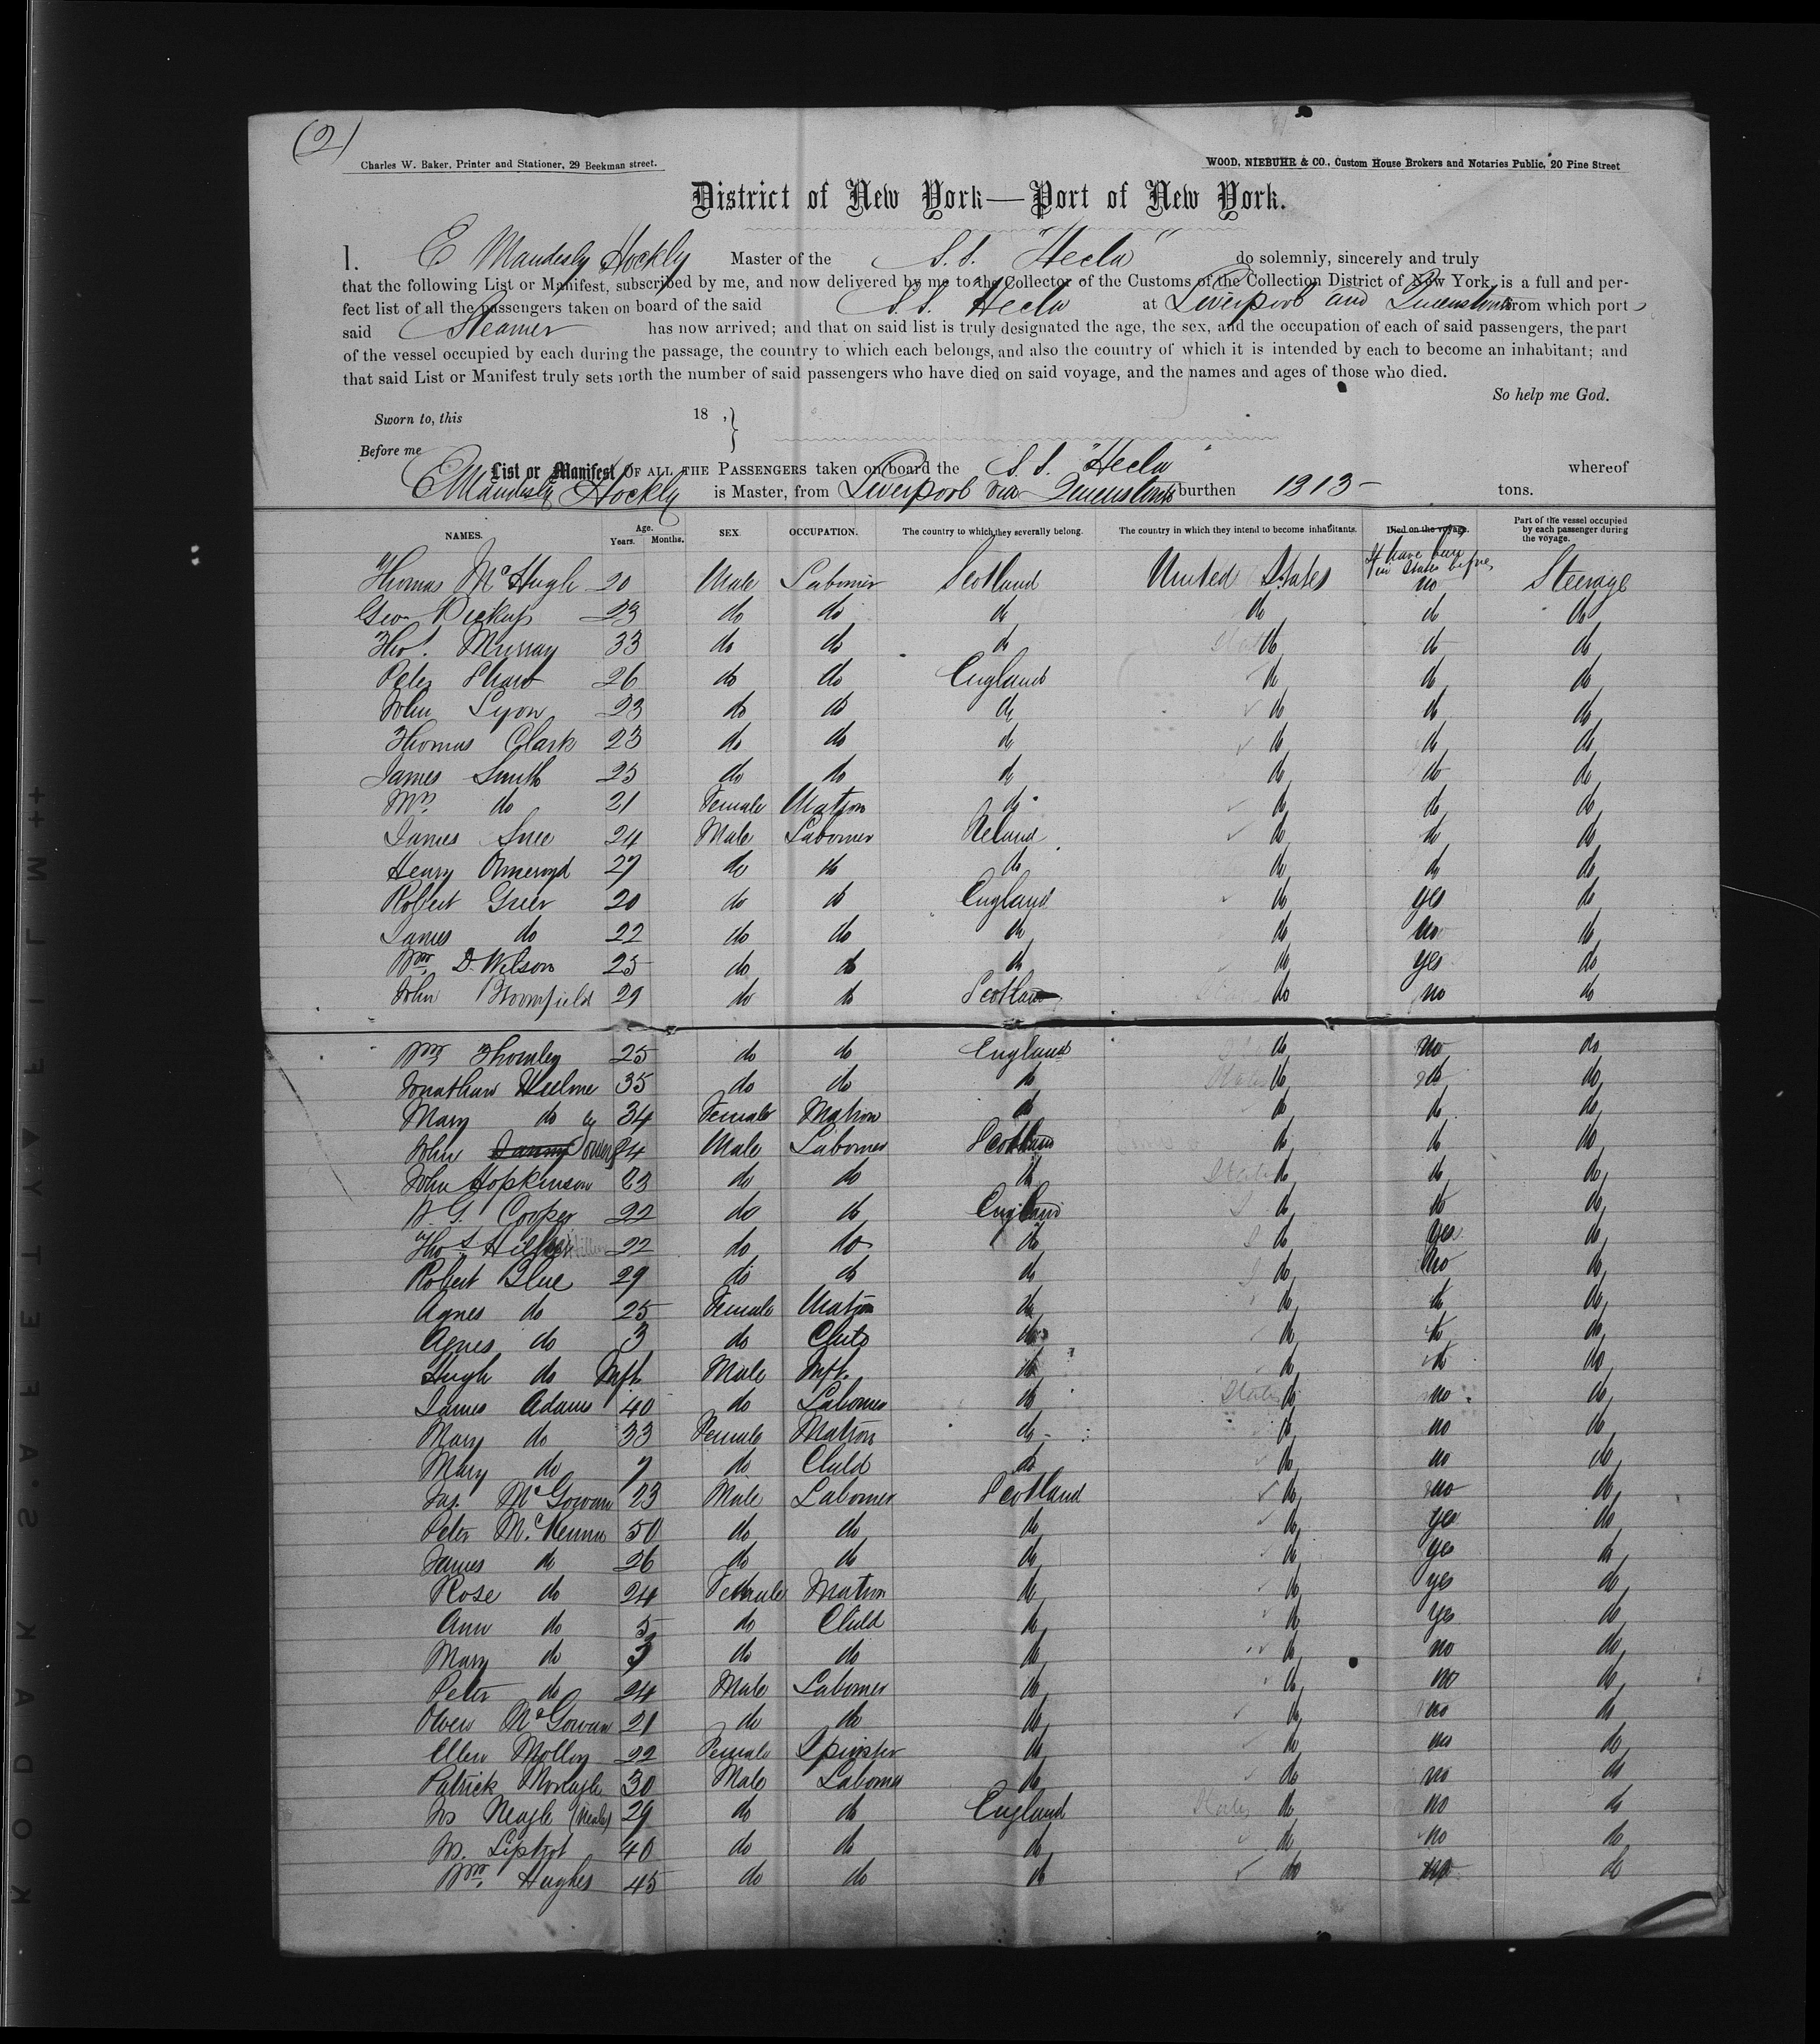 (2)
Charles W. Baker, Printer and Stationer, 29 Beekman street.
WOOD, NIEBUHR & CO., Custom House Brokers and Notaries Public, 20 Pine Street
District of New York—Port of New York.
I. E Maudesly Hockly Master of the S.S. "Hecla" do solemnly, sincerely and truly
that the following List or Manifest, subscribed by me, and now delivered by me to the Collector of the Customs of the Collection District of New York, is a full and per-
fect list of all the passengers taken on board of the said S.S. Hecla at Liverpool and Queenstown from which port
said Steamer has now arrived; and that on said list is truly designated the age, the sex, and the occupation of each of said passengers, the part
of the vessel occupied by each during the passage, the country to which each belongs, and also the country of which it is intended by each to become an inhabitant; and
that said List or Manifest truly sets forth the number of said passengers who have died on said voyage, and the names and ages of those who died.
So help me God.
Sworn to, this 18 ,}
Before me
List or Manifest OF ALL THE PASSENGERS taken on board the S.S. "Hecla" whereof
E Maudesly Hockly is Master, from Liverpool via Queenstown burthen 1313 - tons.
NAMES. Age. Years. Months. SEX. OCCUPATION. The country to which they severally belong. The country in which they intend to become inhabitants. Died on the voyage. Part of the vessel occupied by each passenger during the voyage.
If have been in States before
Thomas McHugh 20 Male Labourer Scotland United States no Steerage
Geo Dickup 23 do do do do do do
Thos. Murray 33 do do do do do do
Peter Shaw 26 do do England do do do
John Lyon 23 do do do do do do
Thomas Clark 23 do do do do do do
James Smith 25 do do do do do do
Mrs do 21 Female Matron do do do do
James Snee 24 Male Labourer Ireland do do do
Henry Ormeroyd 27 do do do do do do
Robert Greer 20 do do England do yes do
James do 22 do do do do no do
Wm D. Wilson 25 do do do do yes do
John Bloomfield 29 do do Scotland do no do
Wm Thornley 25 do do England do no do
Jonathan Heelme 35 do do do do do do
Mary do 34 Female Matron do do do do
John 24 Male Labourer Scotland do do do
John Hopkinson 23 do do do do do do
W. G. Cooper 22 do do England do do do
Thos 22 do do do do yes do
Robert Blue 29 do do do do no do
Agnes do 25 Female Matron do do do do
Agnes do 3 do Child do do do do
Hugh do Inft. Male Inft. do do do do
James Adams 40 do Labourer do do no do
Mary do 33 Female Matron do do no do
Mary do 7 do Child do do no do
Jas. McGowan 23 Male Labourer Scotland do no do
Peter McKenna 50 do do do do yes do
James do 26 do do do do yes do
Rose do 24 Female Matron do do yes do
Ann do 5 do Child do do yes do
Mary do 3 do do do do no do
Peter do 24 Male Labourer do do no do
Owen McGowan 21 do do do do no do
Ellen Molloy 22 Female Spinster do do no do
Patrick Monagle 30 Male Labourer do do no do
Jos Neagle (Neale) 29 do do England do no do
Jos. Liptrot 40 do do do do no do
Wm. Hughes 45 do do do do no do
KODAK S.A.F.A.'S.A FETY FILM ++